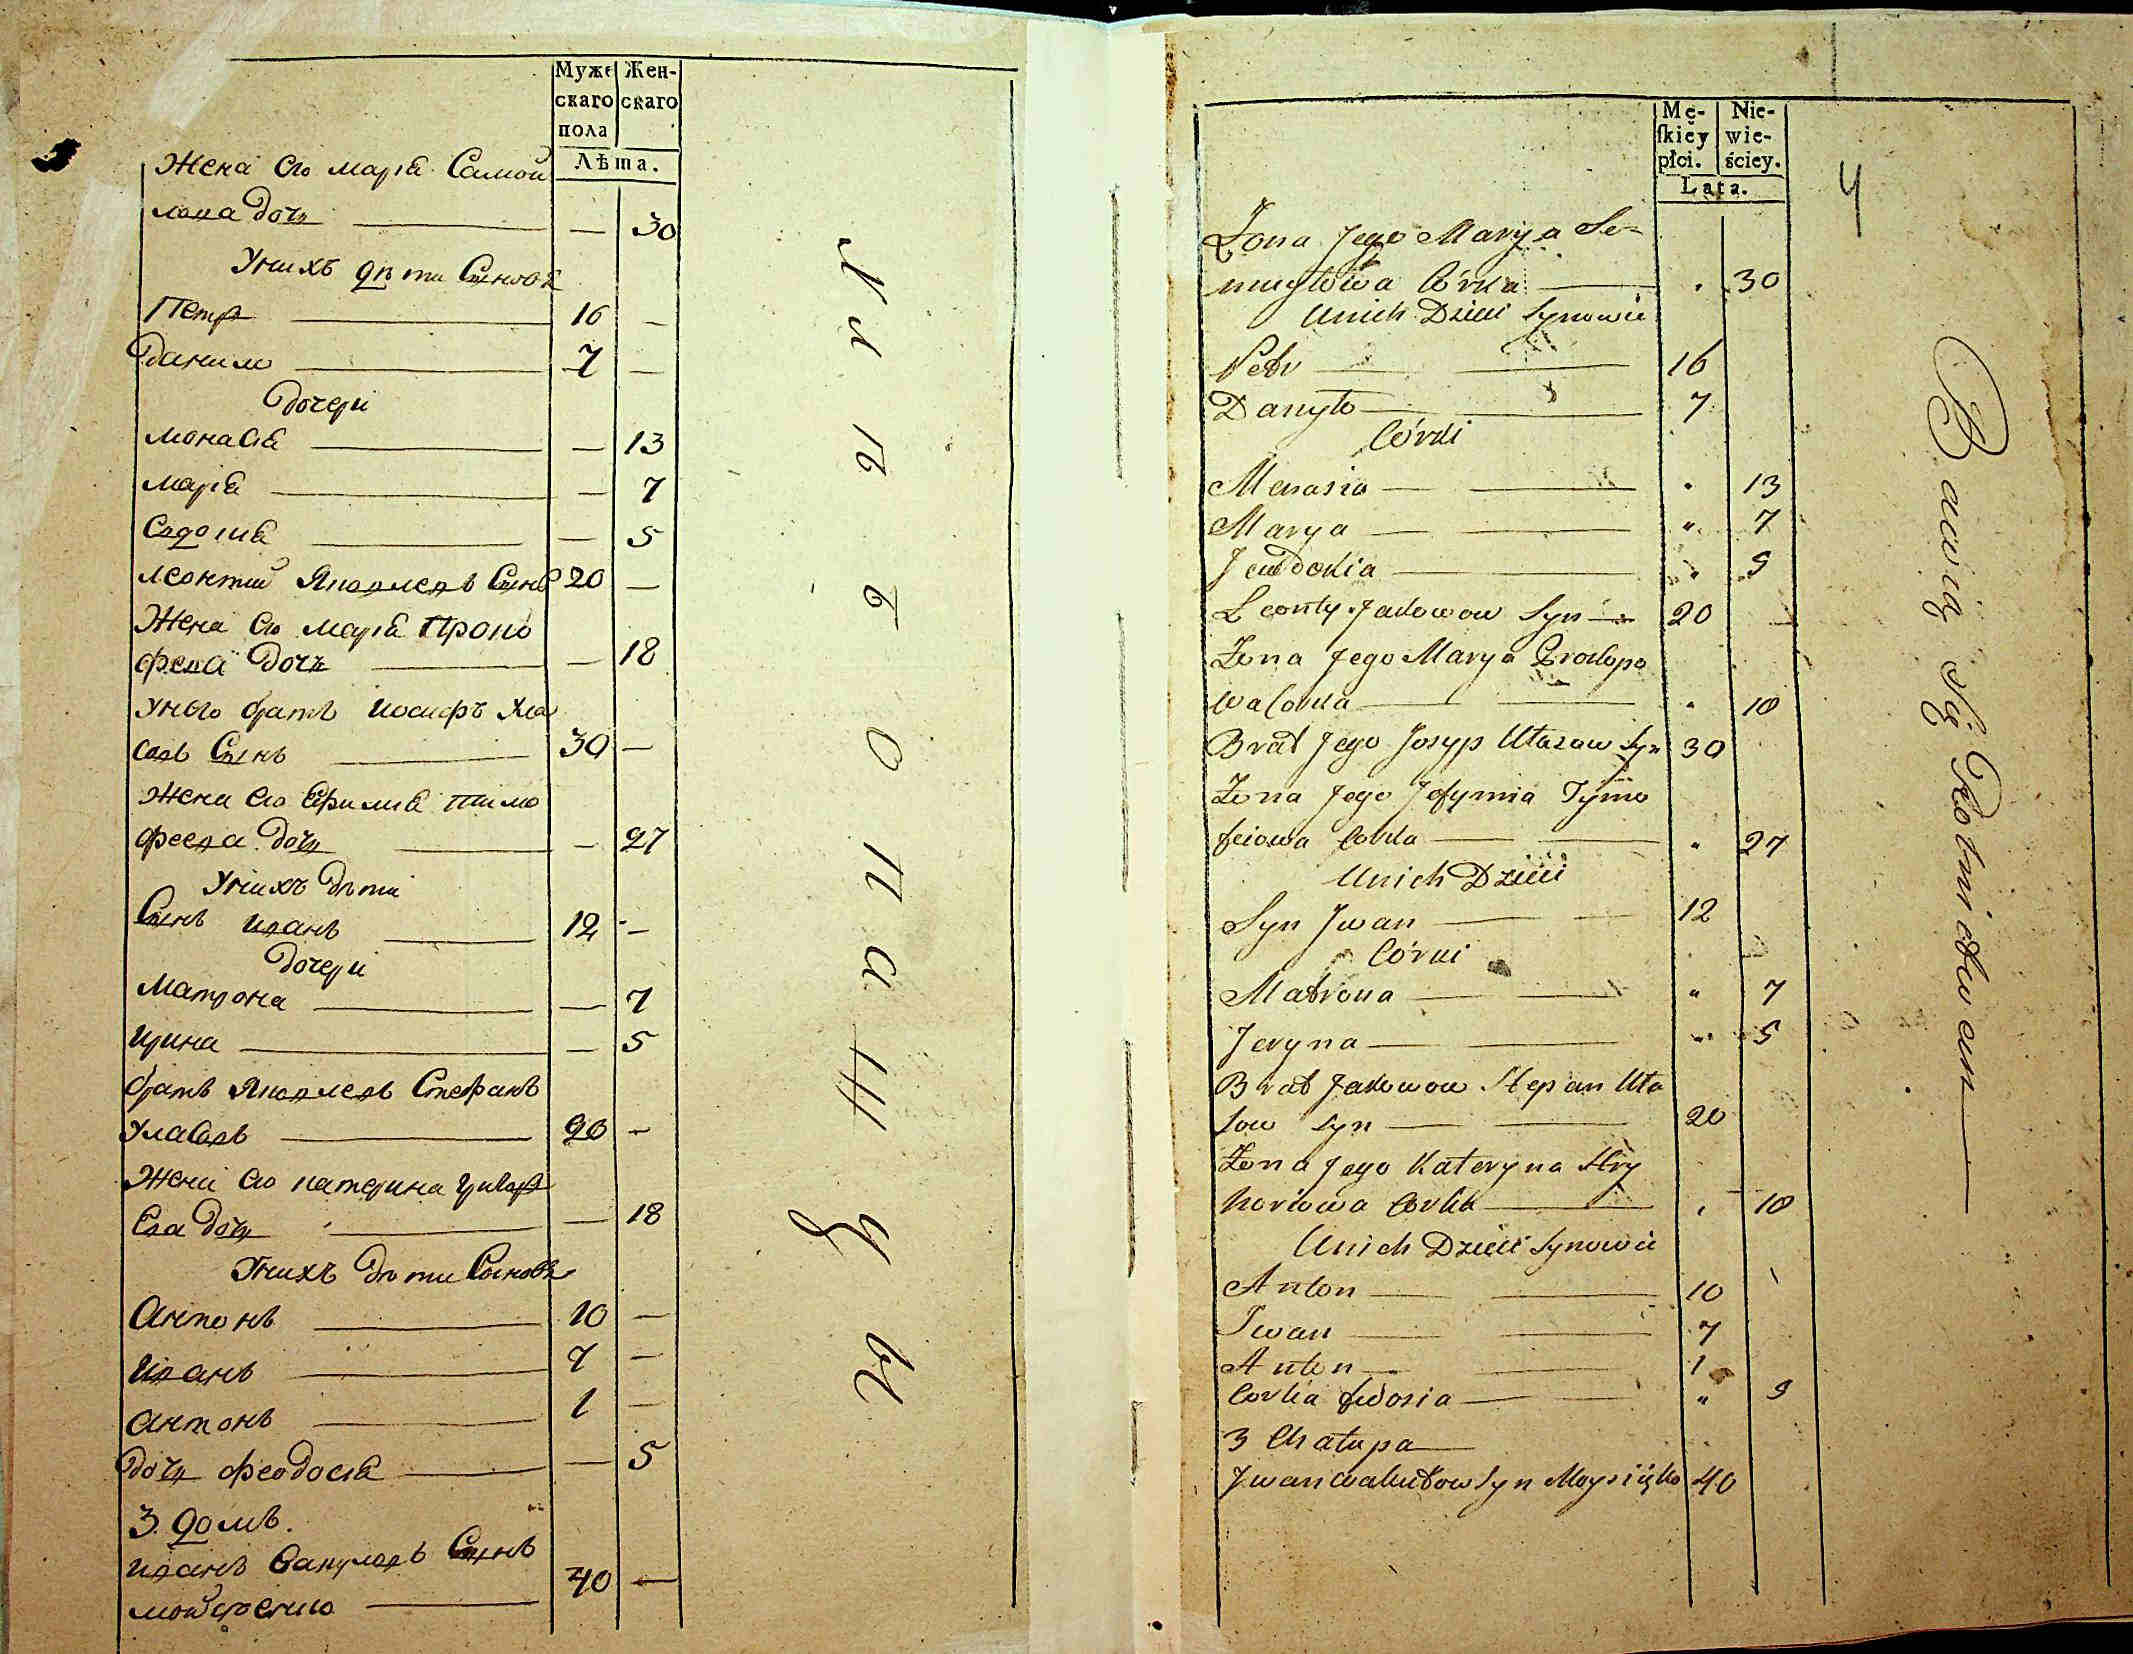 Муже Жен-
скаго скаго
пола
Лѣта.
Жена его марія Самой
лова дочь — 30
У нихъ дѣти Сыновя
Петр 16 —
Данило 7 —
дочери
монасія — 13
марія — 7
Евдокія — 5
леонтий Яковлевъ Сынъ 20 —
Жена его марія Проко
фева дочь — 18
У него братъ иосифъ Ула
совъ Сынъ 30 —
Жена его Ефимія тимо
феева дочь — 27
У нихъ дѣти
Сынъ иванъ 12 —
дочери
матрона — 7
ирина — 5
братъ Яковлевъ Стефанъ
Уласовъ 20 —
Жена его катерина григор
ева дочь — 18
У нихъ дѣти Сыновя
Антонъ 10 —
иванъ 7 —
антонъ 1 —
дочь феодосія — 5
3. домъ.
иванъ Вакуловъ Сынъ
40 —
Хлѣбопашцы
4
Mę- Nie-
skiey wie-
płci. ściey.
Lata.
Żona Jego Marya Sa-
muyłowa Córka 30
U nich Dzieci Synowie
Petr 16
Danyło 7
Córki
Manasia 13
Marya 7
Jewdokia 5
Leonty Jakowow Syn 20
Żona Jego Marya Prokopo
wa Corka 18
Brat Jego Josyp Ułasow Syn 30
Żona Jego Jefymia Tymo
feiowa Corka 27
U nich Dzieci
Syn Jwan 12
Córki
Matrona 7
Jeryna 5
Brat Jakowow Stepan Uła
sow Syn 20
Żona Jego Kateryna Hry
horiowa Corka 18
U nich Dzieci Synowie
Anton 10
Iwan 7
Anton 1
Corka fedosia 5
3 Chałupa
Jwan Wakułow Syn 40
Bawią Się Rolnictwem